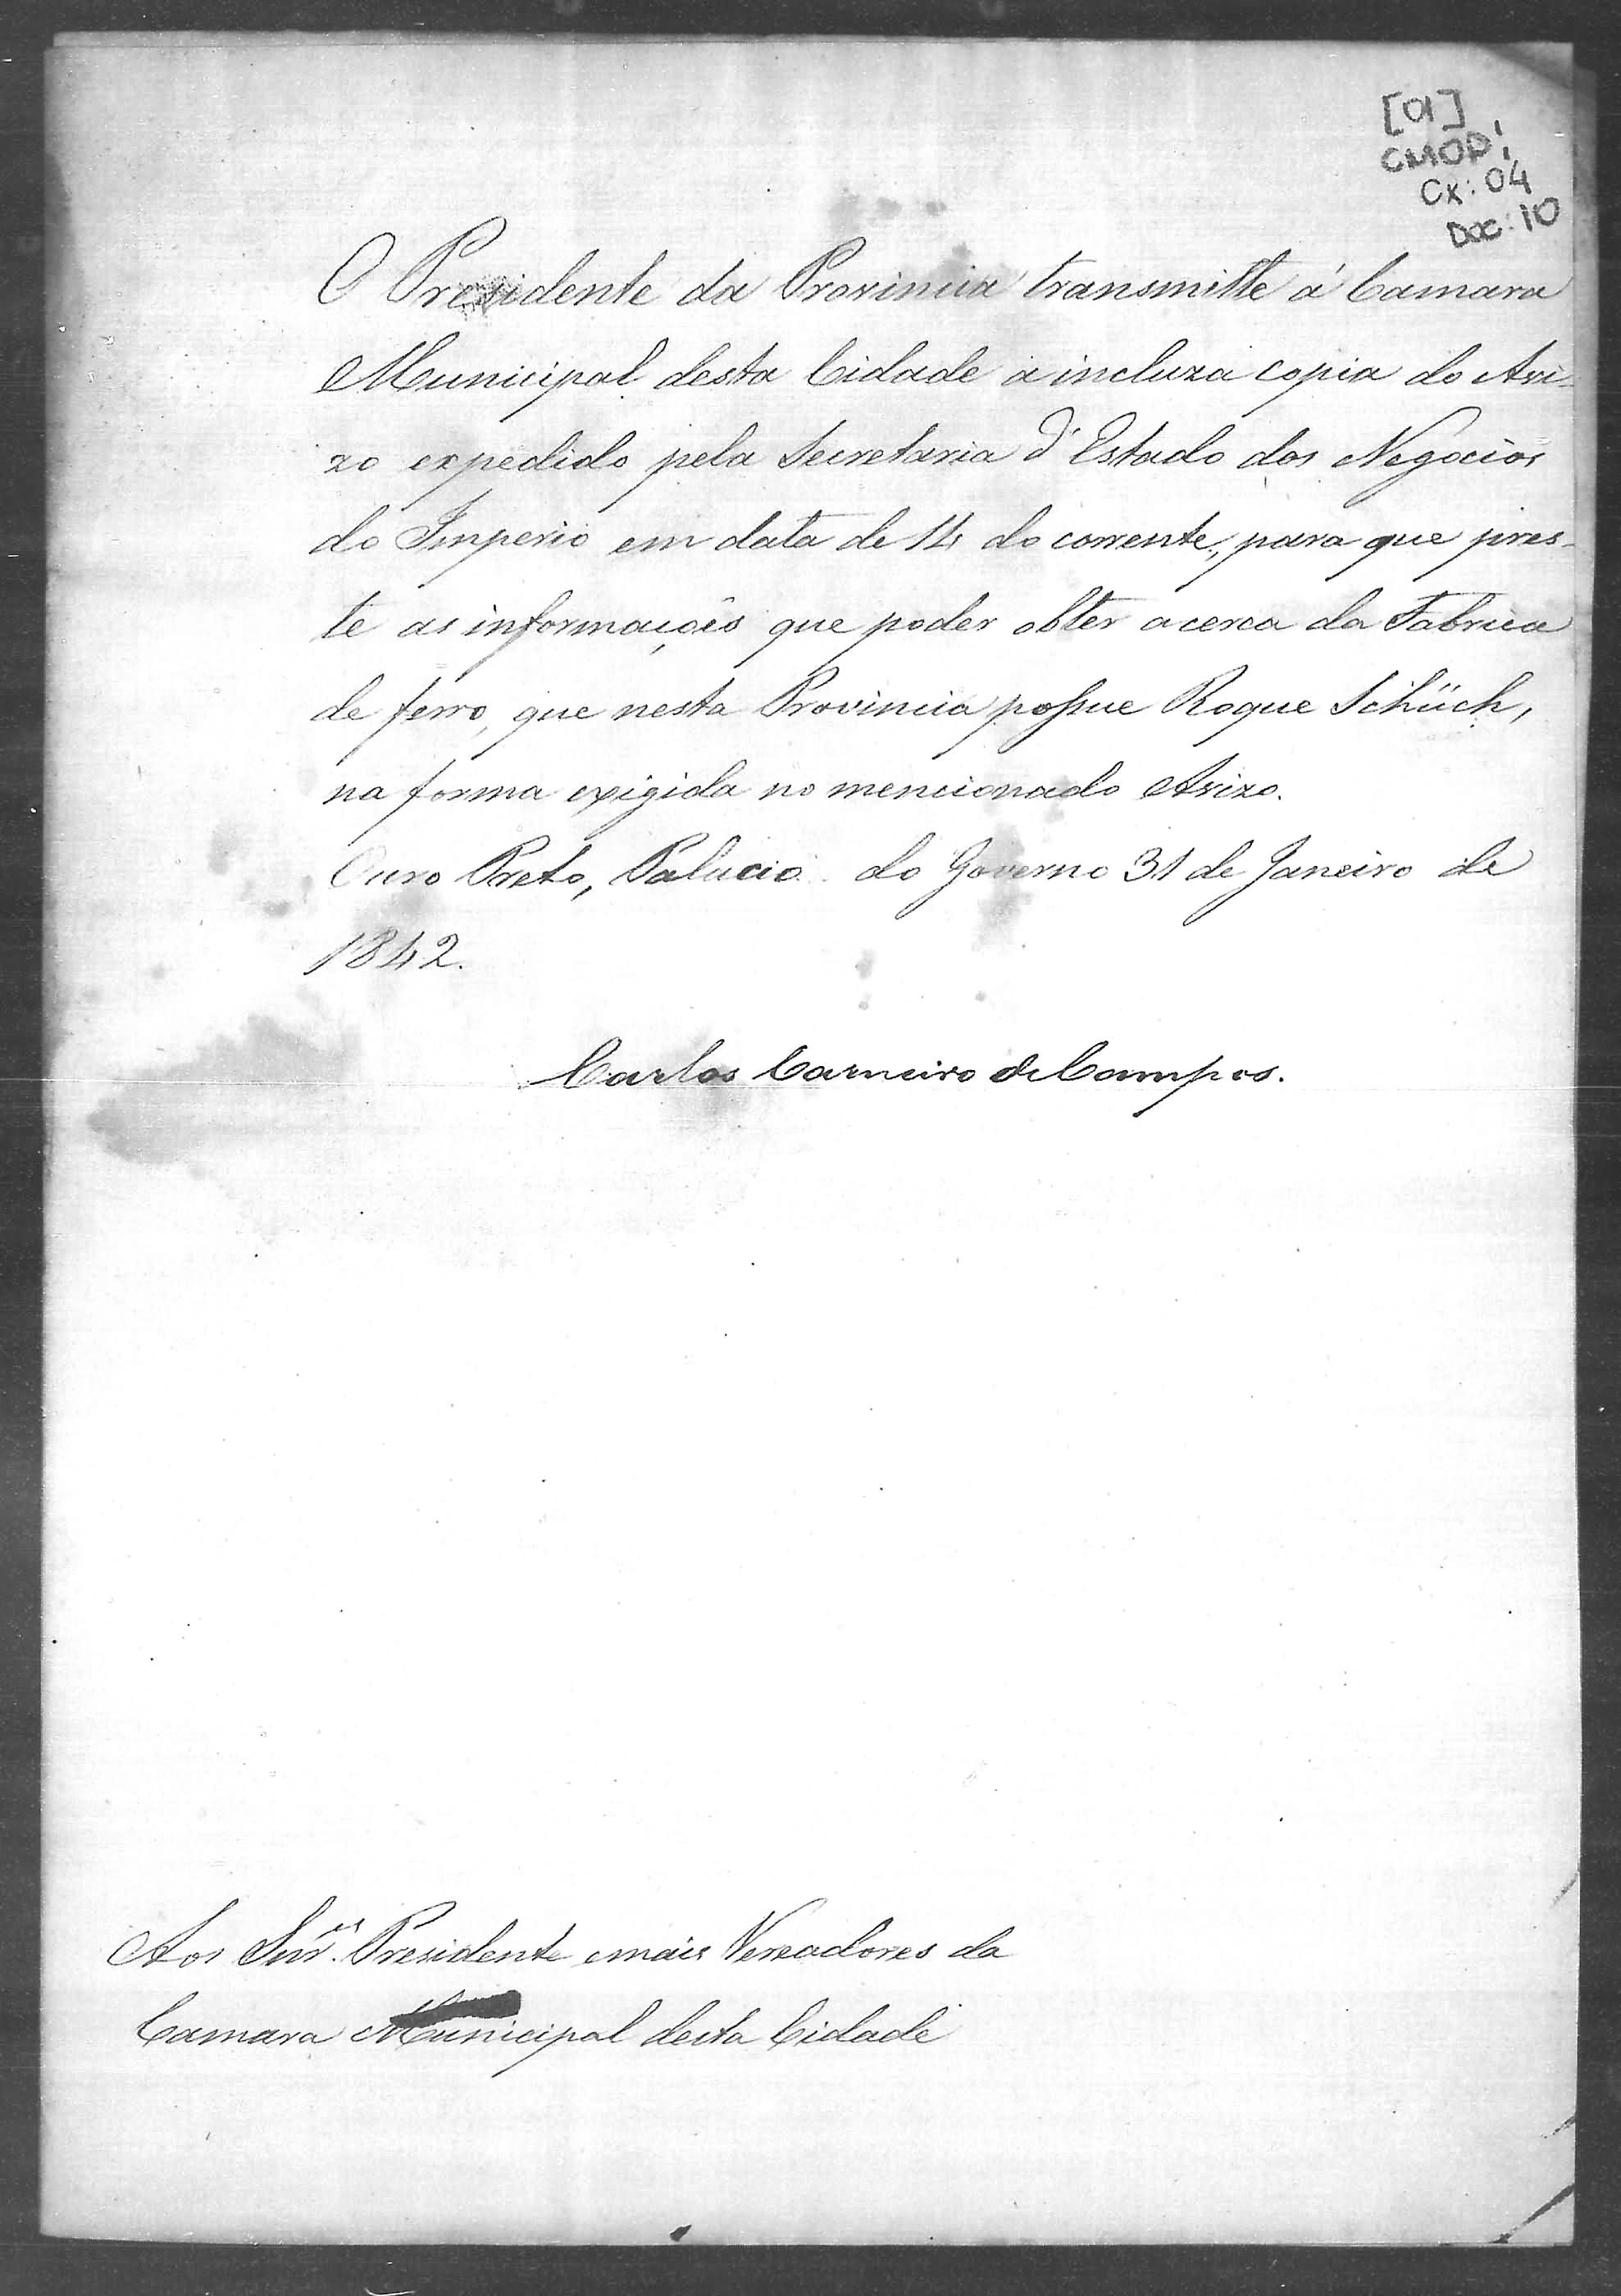 [01]
CMOP!
Cx: 04
Doc: 10
O Presidente da Provincia transmitte á Camara
Municipal desta Cidade a incluza copia do Avi-
zo expedido pela Secretaria d'Estado dos Negocios
do Imperio em data de 14 do corrente, para que pres-
te as informações que poder obter acerca da Fabrica
de ferro, que nesta Provincia possue Roque Schüch,
na forma exigida no mencionado Avizo.
Ouro Preto, Palacio do Governo 31 de Janeiro de
1842.
Carlos Carneiro de Campos.
Aos Snr.es Presidente e mais Vereadores da
Camara Municipal desta Cidade